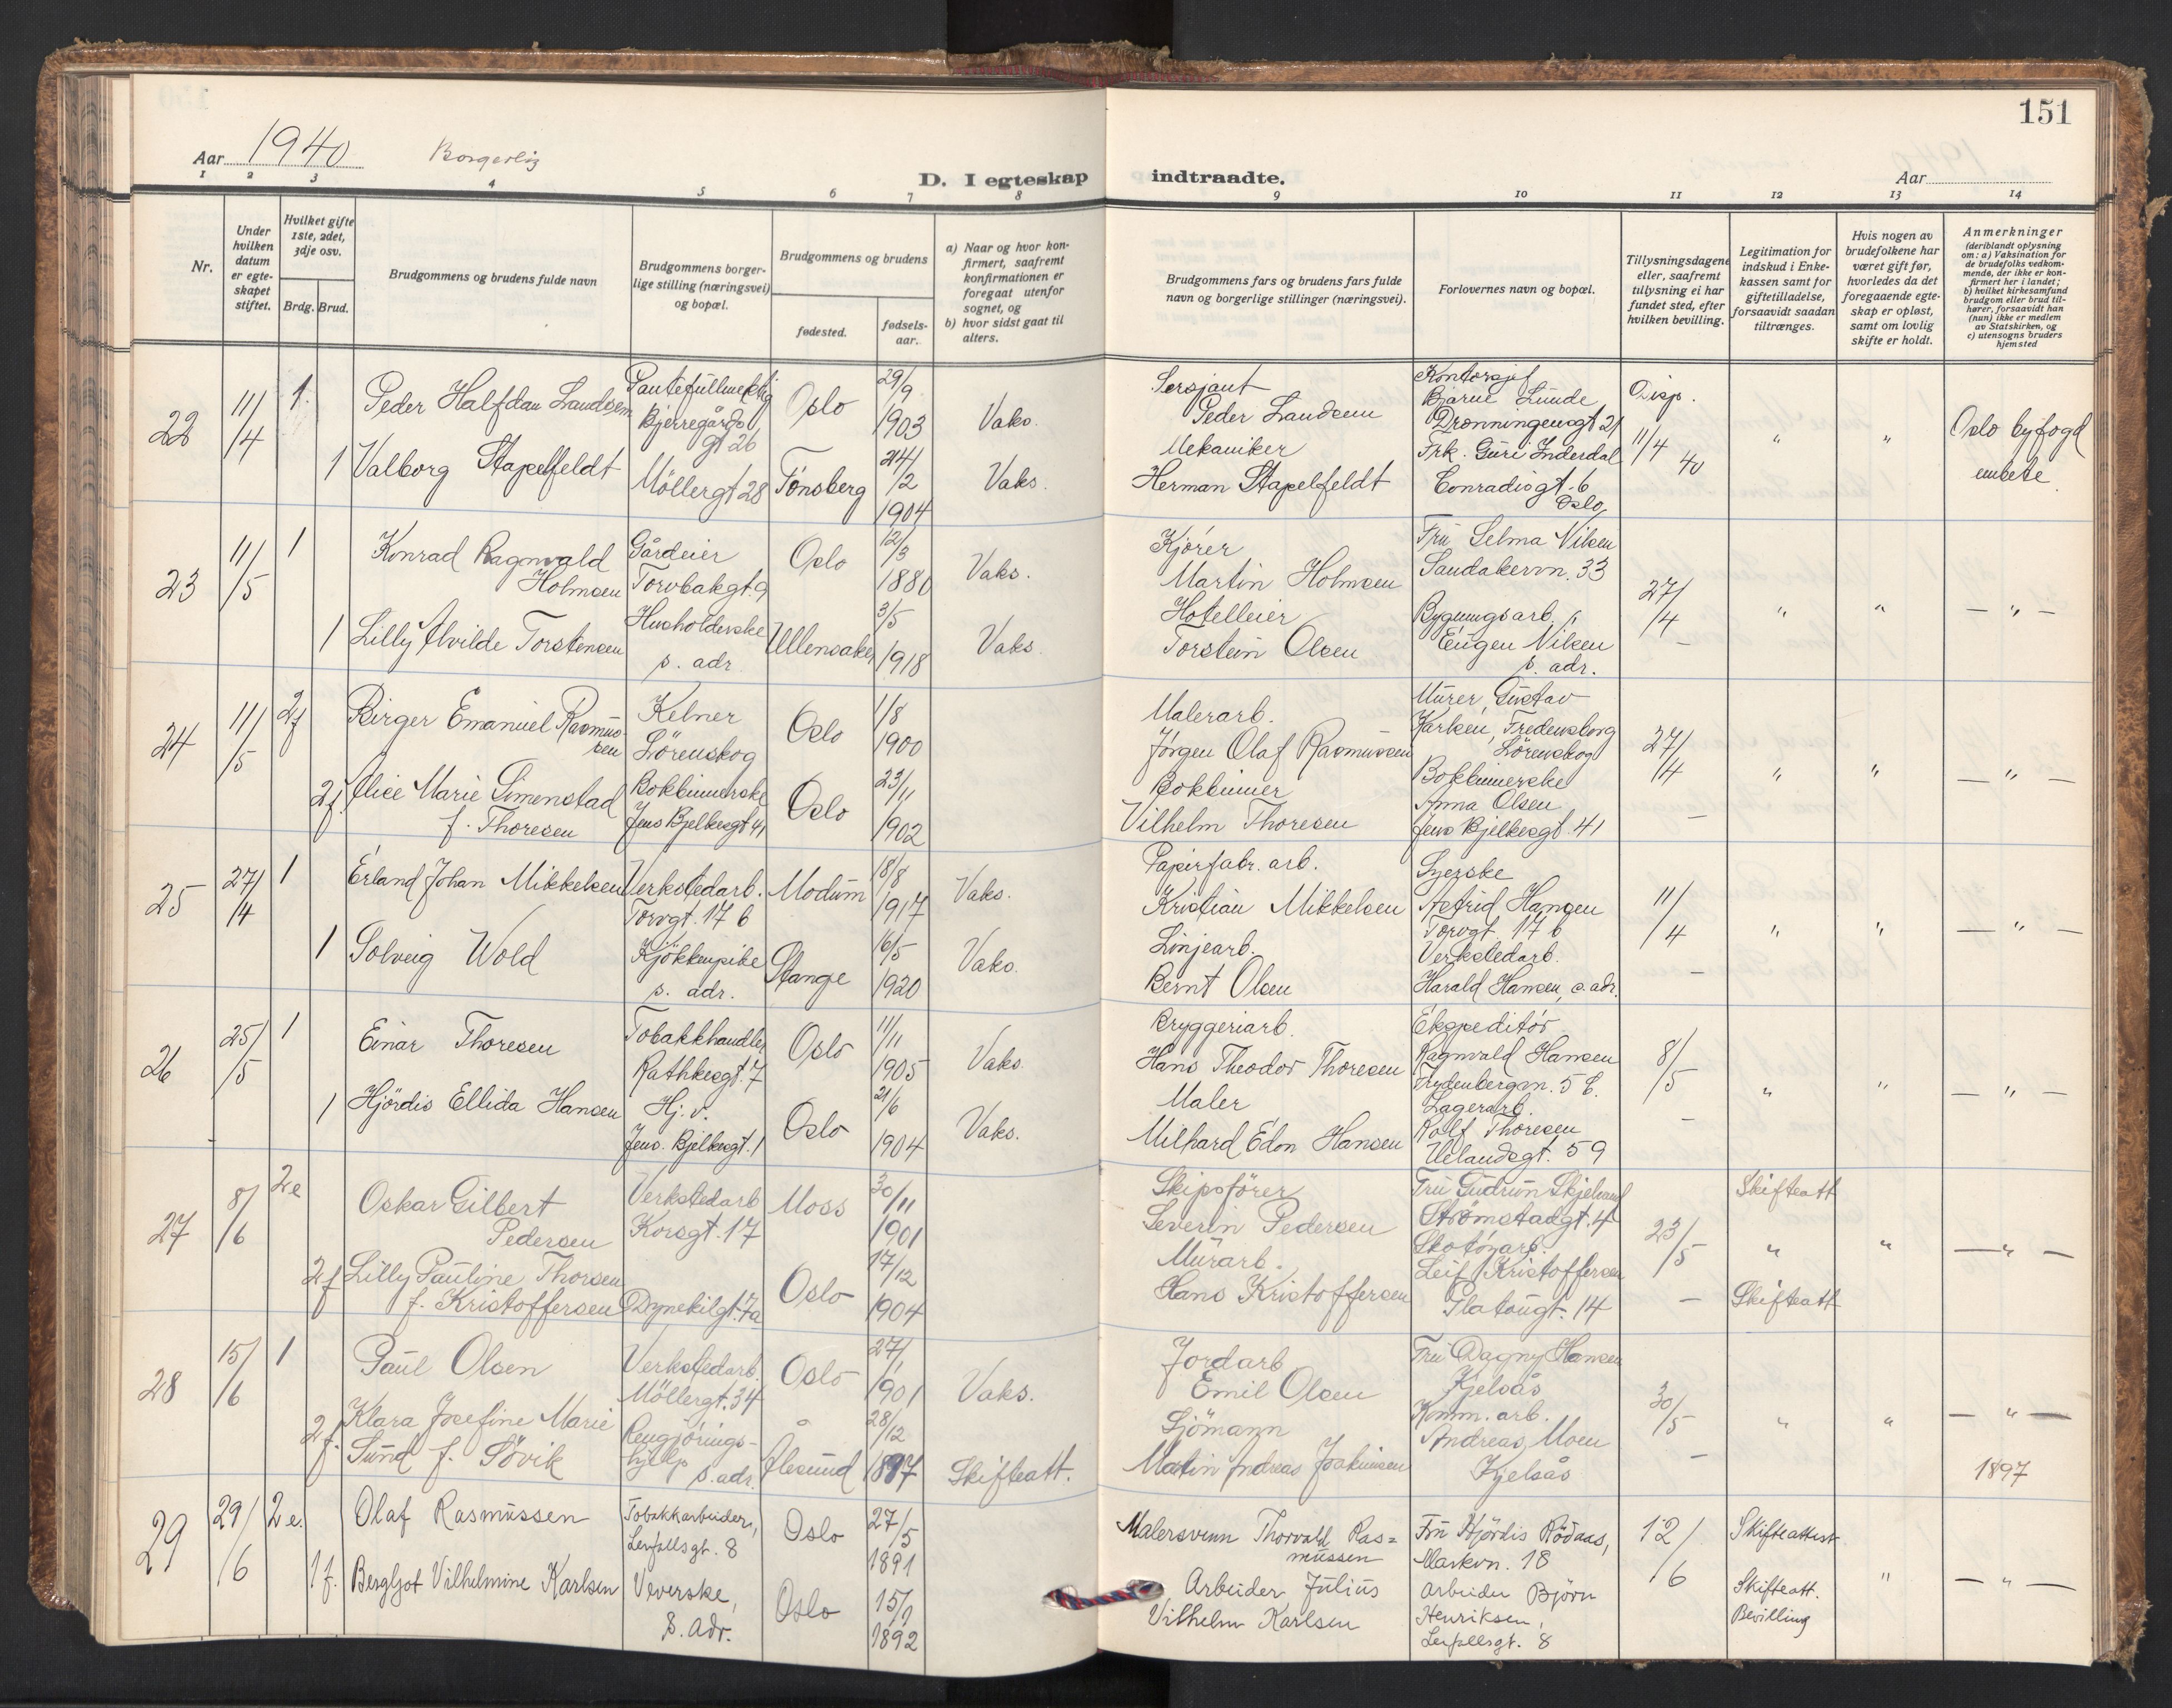 151
Aar 1940 Borgerlig
D. I egteskap indtraadte.
Aar
1 2 3 4 5 6 7 8 9 10 11 12 13 14
Nr.
Under hvilken datum er egteskapet stiftet.
Hvilket gifte 1ste, 2det, 3dje osv.
Brdg. Brud.
Brudgommens og brudens fulde navn
Brudgommens borgerlige stilling (næringsvei) og bopæl.
Brudgommens og brudens
fødested.
fødselsaar.
a) Naar og hvor konfirmert, saafremt konfirmationen er foregaat utenfor sognet, og
b) hvor sidst gaat til alters.
Brudgommens fars og brudens fars fulde navn og borgerlige stillinger (næringsvei).
Forlovernes navn og bopæl.
Tillysningsdagene eller, saafremt tillysning ei har fundet sted, efter hvilken bevilling.
Legitimation for indskud i Enkekassen samt for giftetilladelse, forsaavidt saadan tiltrænges.
Hvis nogen av brudefolkene har været gift før, hvorledes da det foregaaende egteskap er opløst, samt om lovlig skifte er holdt.
Anmerkninger
(deriblandt oplysning om: a) Vaksination for de brudefolks vedkommende, der ikke er konfirmert her i landet; b) hvilket kirkesamfund brudgom eller brud tilhører, forsaavidt han (hun) ikke er medlem av Statskirken, og c) utensogns bruders hjemsted
22 11/4 1. Peder Halfdan Landsem
Pantefullmektig Bjerregårds gt 26
Oslo 29/9 1903 Vaks.
Sersjant Peder Landsem
Kontorsjef Bjarne Lunde Dronningensgt 21
Disp. 11/4 40 " " Oslo byfogd embete
1 Valborg Stapelfeldt
Möllergt 28 Tönsberg 24/2 1904 Vaks.
Mekaniker Herman Stapelfeldt
Frk. Guri Inderdal Conradisgt. 6 Oslo
23 11/5 1 Konrad Ragnvald Holmsen
Gårdeier Torvbakgt. 9
Oslo 12/3 1880 Vaks.
Kjører Martin Holmsen
Fru Selma Viken Sandakervn. 33
27/4 - " " — " —
1 Lilly Alvilde Torstensen
Husholderske s. adr. Ullensaker 3/5 1918 Vaks.
Hotelleier Torstein Olsen
Bygningsarb. Eugen Viken s. adr.
24 11/5 2f Birger Emanuel Rasmussen
Kelner Lörenskog
Oslo 1/8 1900
Malerarb. Jörgen Olaf Rasmussen
Murer Gustav Karlsen, Fredensborg Lörenskog
27/4 - " " — " —
2f. Alice Marie Simenstad f. Thoresen
Bokbinnerske Jens Bjelkesgt 41
Oslo 23/11 1902
Bokbinner Vilhelm Thoresen
Bokbinnerske Anna Olsen Jens Bjelkesgt. 41
25 27/4 1 Erland Johan Mikkelsen
Verkstedarb. Torvgt. 17 b
Modum 18/8 1917 Vaks.
Papirfabr. arb. Kristian Mikkelsen
Syerske Astrid Hansen Torvgt. 17 b
11/4 - " " — " —
1 Solveig Wold
Kjökkenpike s. adr. Stange 16/5 1920 Vaks.
Linjearb. Bernt Olsen
Verkstedarb. Harald Hansen, s. adr.
26 25/5 1 Einar Thoresen
Tobakkhandler Rathkesgt. 7
Oslo 11/11 1905 Vaks.
Bryggeriarb. Hans Theodor Thoresen
Ekspeditör Ragnvald Hansen Frydenbergvn. 5 b.
8/5 - " " — " —
1 Hjördis Ellida Hansen
Hj. v. Jens. Bjelkesgt. 1
Oslo 21/6 1904 Vaks.
Maler Milhard Edon Hansen
Lagerarb. Rolf Thoresen Uelandsgt. 59
27 8/6 2e Oskar Gilbert Pedersen
Verkstedarb Korsgt. 17
Moss 30/11 1901
Skipsförer Severin Pedersen
Fru Gudrun Strömstadgt. 4
23/5 - Skifteatt " " — " —
2f Lilly Pauline Thorsen f. Kristoffersen
Dynekilgt. 7a
Oslo 17/12 1904
Murarb. Hans Kristoffersen
Skotöyarb. Leif Kristoffersen Platougt. 14
Skifteatt
28 15/6 1 Paul Olsen
Verkstedarb. Möllergt. 34
Oslo 27/1 1901 Vaks.
Jordarb Emil Olsen
Fru Dagny Hansen Kjelsås
30/5 - " " — " —
2f. Klara Josefine Marie Sund f. Sövik
Rengjörings-hjelp s. adr.
Ålesund 28/12 1897 Skifteatt.
Sjömann Martin Andreas Joakimsen
Komm. arb. Andreas Moen Kjelsås
1897
29 29/6 2 e. Olaf Rasmussen
Tobakkarbeider, Lerfallsgt. 8
Oslo 27/5 1891
Malersvenn Thorvald Ras=mussen
Fru Hjördis Rödaas, Markvn. 18
12/6 Skifteattest " — " —
1 f. Bergljot Vilhelmine Karlsen
Veverske, S. Adr.
Oslo 15/1 1892
Arbeider Julius Vilhelm Karlsen
Arbeider Björn Henriksen, Lerfallsgt. 8
Skifteatt. Bevilling